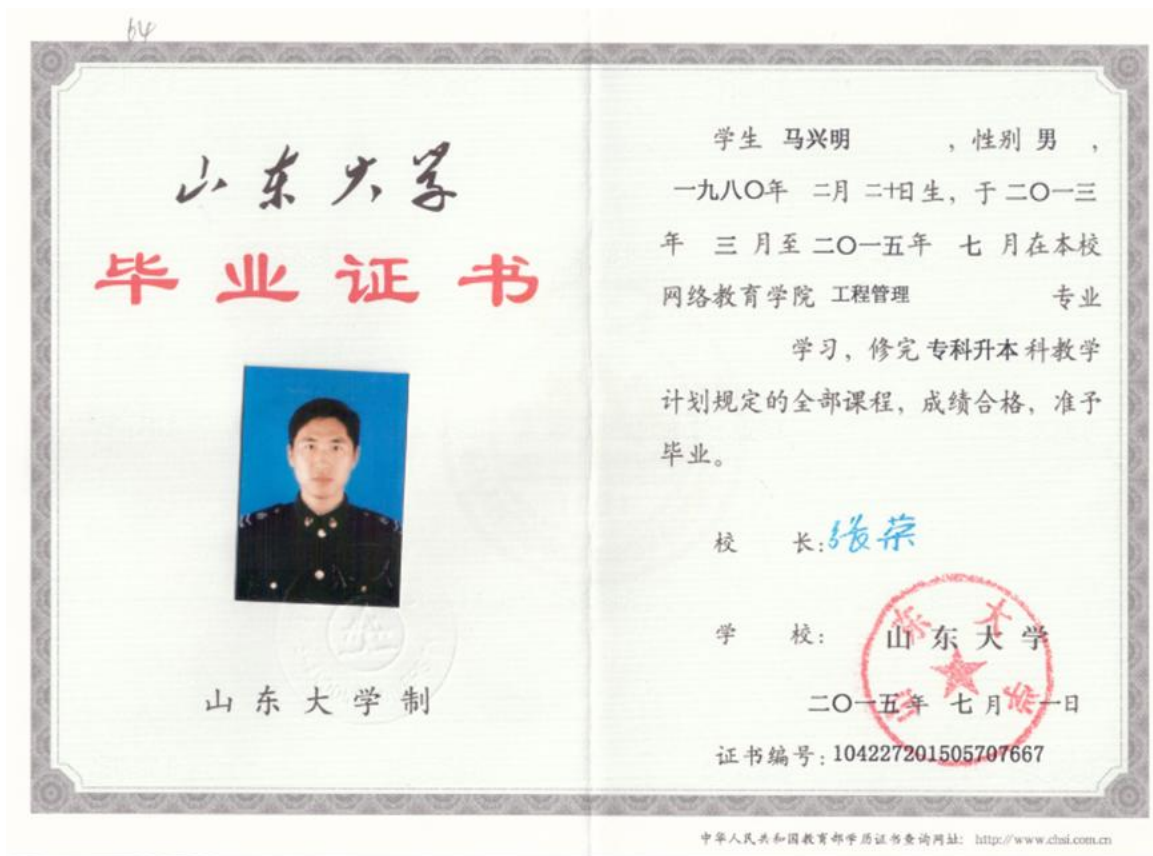 64
山东大学
毕业证书
山东大学制
学生 马兴明 ,性别 男 ,
一九八〇年 二月 二十日生,于 二〇一三
年 三 月至 二〇一五年 七 月在本校
网络教育学院 工程管理 专业
学习,修完 专科升本 科教学
计划规定的全部课程,成绩合格,准予
毕业。
校 长:
学 校: 山东大学
山东大学
二〇一五年 七 月 一日
证书编号:104227201505707667
中华人民共和国教育部学历证书查询网址: http://www.chsi.com.cn